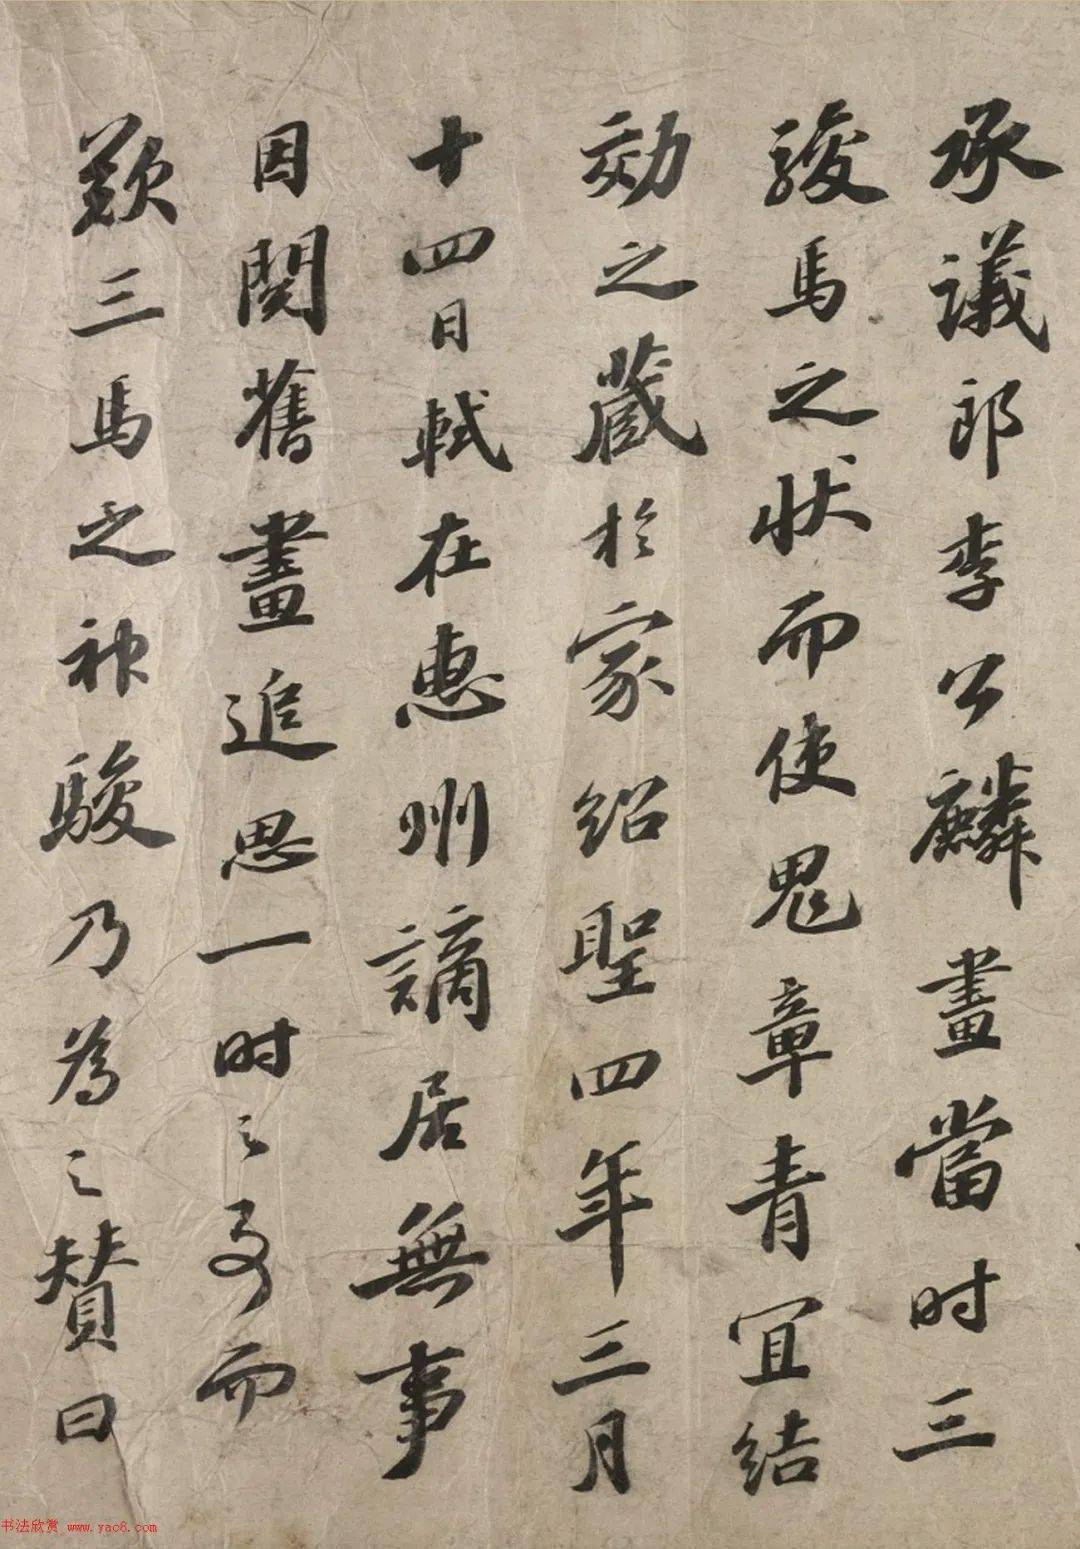 承議郎李公麟畫當时三
駿馬之状而使鬼章青宜结
効之藏於家紹聖四年三月
十四日軾在惠州謫居無事
因閱舊畫追思一时之事而
歎三馬之神駿乃為之赞曰
书法欣赏 www.yac8.com